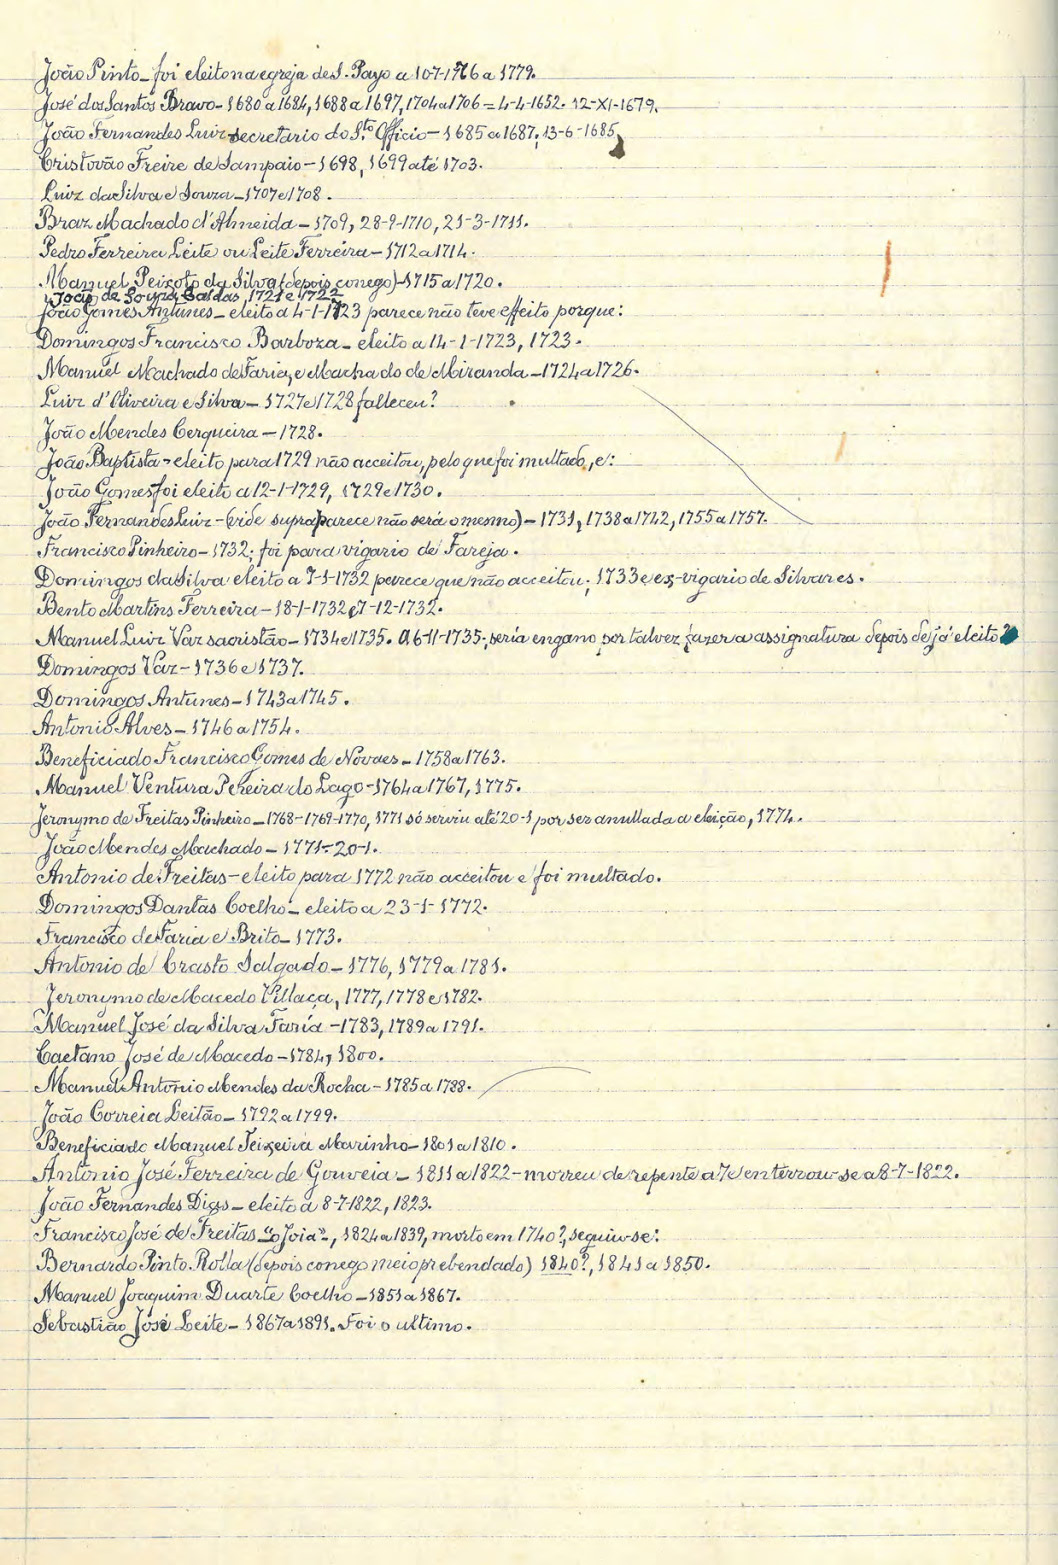 João Pinto – foi eleito na egreja de S. Payo a 10-7-1776 a 1779.
José dos Santos Bravo – 1680 a 1684, 1688 a 1697, 1704 a 1706 = 4-4-1652. 12-XI-1679.
João Fernandes Luiz – secretario do S.to Officio – 1685 a 1687; 13-6-1685,
Cristovão Freire de Sampaio – 1698, 1699 até 1703.
Luiz da Silva e Souza – 1707 e 1708.
Braz Machado d'Almeida – 1709, 28-9-1710, 21-3-1711.
Pedro Ferreira Leite ou Leite Ferreira – 1712 a 1714.
Manuel Peixoto da Silva (depois conego) – 1715 a 1720.
João de Souza Caldas, 1721 e 1722
João Gomes Antunes – eleito a 4-1-1723 parece não teve effeito porque:
Domingos Francisco Barboza – eleito a 14-1-1723, 1723.
Manuel Machado de Faria, e Machado de Miranda – 1724 a 1726.
Luiz d'Oliveira e Silva – 1727 e 1728 falleceu?
João Mendes Cerqueira – 1728.
João Baptista – eleito para 1729 não acceitou, pelo que foi multado, e:
João Gomes foi eleito a 12-1-1729, 1729 e 1730.
João Fernandes Luiz – (vide supra parece não será o mesmo) – 1731, 1738 a 1742, 1755 a 1757.
Francisco Pinheiro – 1732; foi para vigario de Fareja.
Domingos da Silva eleito a 7-1-1732 parece que não acceitou; 1733 e ex-vigario de Silvares.
Bento Martins Ferreira – 18-1-1732 e 7-12-1732.
Manuel Luiz Vaz sacristão – 1734 e 1735. A 6-11-1735; seria engano por talvez fazer a assignatura depois de já eleito?
Domingos Vaz – 1736 e 1737.
Domingos Antunes – 1743 a 1745.
Antonio Alves – 1746 a 1754.
Beneficiado Francisco Gomes de Novaes – 1758 a 1763.
Manuel Ventura Pereira do Lago – 1764 a 1767, 1775.
Jeronymo de Freitas Pinheiro – 1768-1769-1770, 1771 só serviu até 20-1 por ser anullada a eleição, 1774.
João Mendes Machado – 1771 – 20-1.
Antonio de Freitas – eleito para 1772 não acceitou e foi multado.
Domingos Dantas Coelho – eleito a 23-1-1772.
Francisco de Faria e Brito – 1773.
Antonio de Crasto Salgado – 1776, 1779 a 1781.
Jeronymo de Macedo Villaça, 1777, 1778 e 1782.
Manuel José da Silva Faria – 1783, 1789 a 1791.
Caetano José de Macedo – 1784, 1800.
Manuel Antonio Mendes da Rocha – 1785 a 1788.
João Correia Leitão – 1792 a 1799.
Beneficiado Manuel Teixeira Marinho – 1801 a 1810.
Antonio José Ferreira de Gouveia – 1811 a 1822 – morreu de repente a 7 e enterrou-se a 8-7-1822.
João Fernandes Dias – eleito a 8-7-1822, 1823.
Francisco José de Freitas "o Joia", 1824 a 1839, morto em 1740?, seguiu-se:
Bernardo Pinto Rolla (depois conego meio prebendado) 1840?, 1841 a 1850.
Manuel Joaquim Duarte Coelho – 1851 a 1867.
Sebastião José Leite – 1867 a 1891. Foi o ultimo.